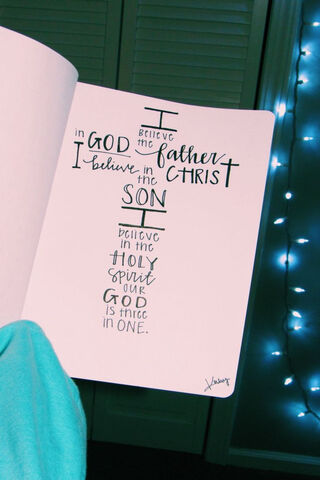 I
believe
in GOD the father
I believe in CHRIST
the
SON
I
believe
in the
HOLY
Spirit
OUR
GOD
is three
in ONE.